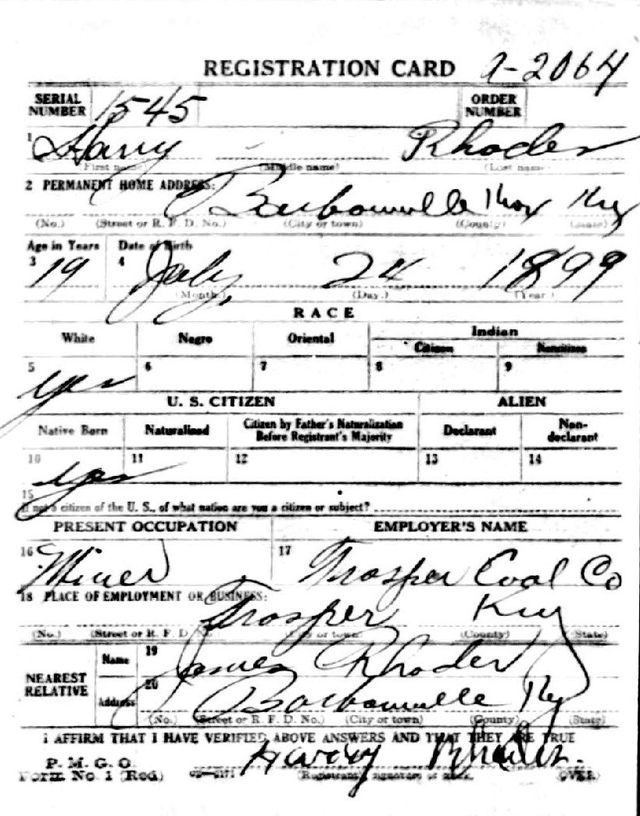 REGISTRATION CARD A-2064
SERIAL NUMBER 1545 ORDER NUMBER
1 Harry Rhodes
(First name) (Middle name) (Last name)
2 PERMANENT HOME ADDRESS: Barbourville Knox Ky
(No.) (Street or R. F. D. No.) (City or town) (County) (State)
Age in Years Date of Birth
3 19 4 July 24 1899
(Month.) (Day.) (Year.)
RACE
White Negro Oriental Indian
Citizen Noncitizen
5 yes 6 7 8 9
U. S. CITIZEN ALIEN
Native Born Naturalized Citizen by Father's Naturalization Before Registrant's Majority Declarant Non-declarant
10 yes 11 12 13 14
15
If not a citizen of the U. S., of what nation are you a citizen or subject?
PRESENT OCCUPATION EMPLOYER'S NAME
16 Miner 17 Trosper Coal Co
18 PLACE OF EMPLOYMENT OR BUSINESS: Trosper Ky
(No.) (Street or R. F. D. No.) (City or town) (County) (State)
NEAREST RELATIVE Name 19 James Rhodes
Address 20 Barbourville Ky
(No.) (Street or R. F. D. No.) (City or town) (County) (State)
I AFFIRM THAT I HAVE VERIFIED ABOVE ANSWERS AND THAT THEY ARE TRUE
P. M. G. O.
Form No. 1 (Red) Harry Rhodes
(Registrant's signature or mark.) (OVER)